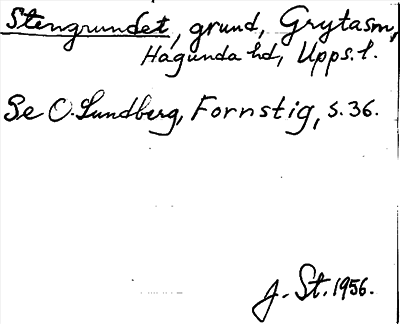 Stengrundet, grund, Grytasm,
Hagunda hd, Upps.l.
Se O. Lundberg, Fornstig, s. 36.
J. St. 1956.